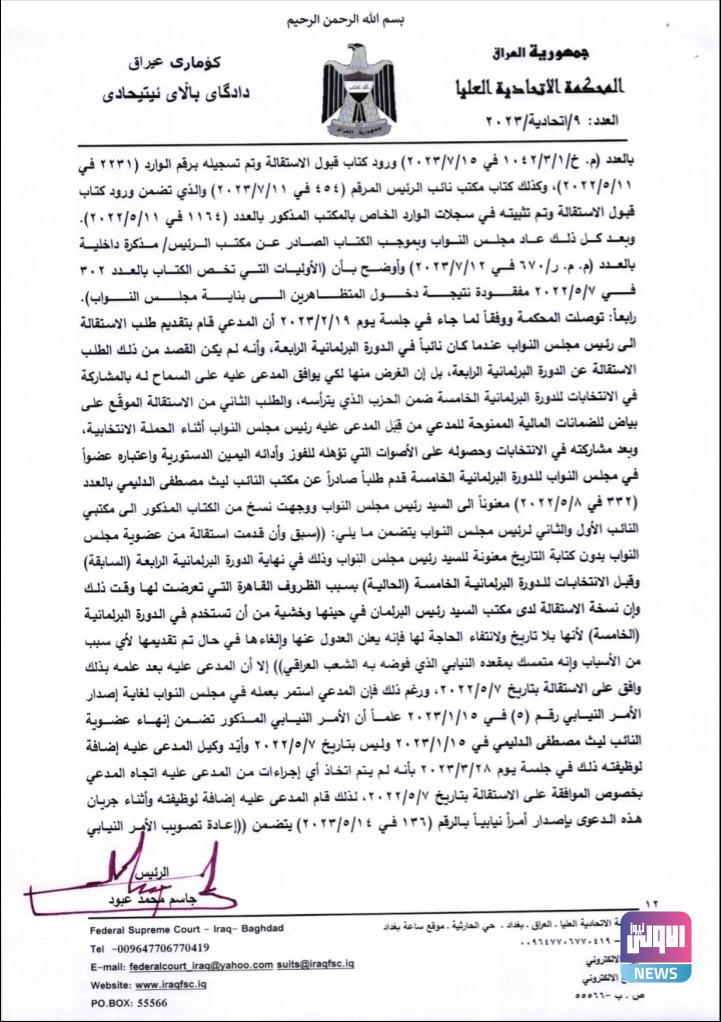 بسم الله الرحمن الرحيم
جمهورية العراق
المحكمة الاتحادية العليا
العدد: ٩/اتحادية/٢٠٢٣
كۆماری عیراق
دادگای باڵای ئیتیحادی
جمهورية العراق
بالعدد (م. خ/١٠٤٢/٣/١ في ٢٠٢٣/٧/١٥) ورود كتاب قبول الاستقالة وتم تسجيله برقم الوارد (٢٢٣١ في
٢٠٢٢/٥/١١)، وكذلك كتاب مكتب نائب الرئيس المرقم (٤٥٤ في ٢٠٢٣/٧/١١) والذي تضمن ورود كتاب
قبول الاستقالة وتم تثبيته في سجلات الوارد الخاص بالمكتب المذكور بالعدد (١١٦٤ في ٢٠٢٢/٥/١١).
وبعد كل ذلك عاد مجلس النواب وبموجب الكتاب الصادر عن مكتب الرئيس/ مذكرة داخلية
بالعدد (م. م. ر/٦٧٠ في ٢٠٢٣/٧/١٢) وأوضح بـأن (الأوليات التي تخص الكتاب بالعدد ٣٠٢
في ٢٠٢٢/٥/٧ مفقودة نتيجة دخول المتظاهرين الى بناية مجلس النواب).
رابعاً: توصلت المحكمة ووفقاً لما جاء في جلسة يوم ٢٠٢٣/٢/١٩ أن المدعي قام بتقديم طلب الاستقالة
الى رئيس مجلس النواب عندما كان نائباً في الدورة البرلمانية الرابعة، وأنه لم يكن القصد من ذلك الطلب
الاستقالة عن الدورة البرلمانية الرابعة، بل إن الغرض منها لكي يوافق المدعى عليه على السماح له بالمشاركة
في الانتخابات للدورة البرلمانية الخامسة ضمن الحزب الذي يترأسه، والطلب الثاني من الاستقالة الموقّع على
بياض للضمانات المالية الممنوحة للمدعي من قِبَل المدعى عليه رئيس مجلس النواب أثناء الحملة الانتخابية،
وبعد مشاركته في الانتخابات وحصوله على الأصوات التي تؤهله للفوز وأدائه اليمين الدستورية واعتباره عضواً
في مجلس النواب للدورة البرلمانية الخامسة قدم طلباً صادراً عن مكتب النائب ليث مصطفى الدليمي بالعدد
(٣٣٢ في ٢٠٢٢/٥/٨) معنوناً الى السيد رئيس مجلس النواب ووجهت نسخ من الكتاب المذكور الى مكتبي
النائب الأول والثاني لرئيس مجلس النواب يتضمن ما يلي: ((سبق وأن قدمت استقالة من عضوية مجلس
النواب بدون كتابة التاريخ معنونة للسيد رئيس مجلس النواب وذلك في نهاية الدورة البرلمانية الرابعة (السابقة)
وقبل الانتخابات للدورة البرلمانية الخامسة (الحالية) بسبب الظروف القاهرة التي تعرضت لها وقت ذلك
وإن نسخة الاستقالة لدى مكتب السيد رئيس البرلمان في حينها وخشية من أن تستخدم في الدورة البرلمانية
(الخامسة) لأنها بلا تاريخ ولانتفاء الحاجة لها فإنه يعلن العدول عنها وإلغاءها في حال تم تقديمها لأي سبب
من الأسباب وإنه متمسك بمقعده النيابي الذي فوضه به الشعب العراقي)) إلا أن المدعى عليه بعد علمه بذلك
وافق على الاستقالة بتاريخ ٢٠٢٢/٥/٧، ورغم ذلك فإن المدعي استمر بعمله في مجلس النواب لغاية إصدار
الأمر النيابي رقم (٥) في ٢٠٢٣/١/١٥ علماً أن الأمر النيابي المذكور تضمن إنهاء عضوية
النائب ليث مصطفى الدليمي في ٢٠٢٣/١/١٥ وليس بتاريخ ٢٠٢٢/٥/٧ وأيّد وكيل المدعى عليه إضافة
لوظيفته ذلك في جلسة يوم ٢٠٢٣/٣/٢٨ بأنه لم يتم اتخاذ أي إجراءات من المدعى عليه اتجاه المدعي
بخصوص الموافقة على الاستقالة بتاريخ ٢٠٢٢/٥/٧، لذلك قام المدعى عليه إضافة لوظيفته وأثناء جريان
هذه الدعوى بإصدار أمراً نيابياً بالرقم (١٣٦ في ٢٠٢٣/٥/١٤) يتضمن ((إعادة تصويب الأمر النيابي
الرئيس
جاسم محمد عبود
١٢
Federal Supreme Court - Iraq- Baghdad
Tel -009647706770419
E-mail: federalcourt_iraq@yahoo.com suits@iraqfsc.iq
Website: www.iraqfsc.iq
PO.BOX: 55566
الاتحادية العليا . العراق . بغداد . حي الحارثية . موقع ساعة بغداد
٠٠٩٦٤٧٧٠٦٧٧٠٤١٩ -
الالكتروني
الالكتروني
ص . ب - ٥٥٥٦٦
الاولى نيوز
NEWS